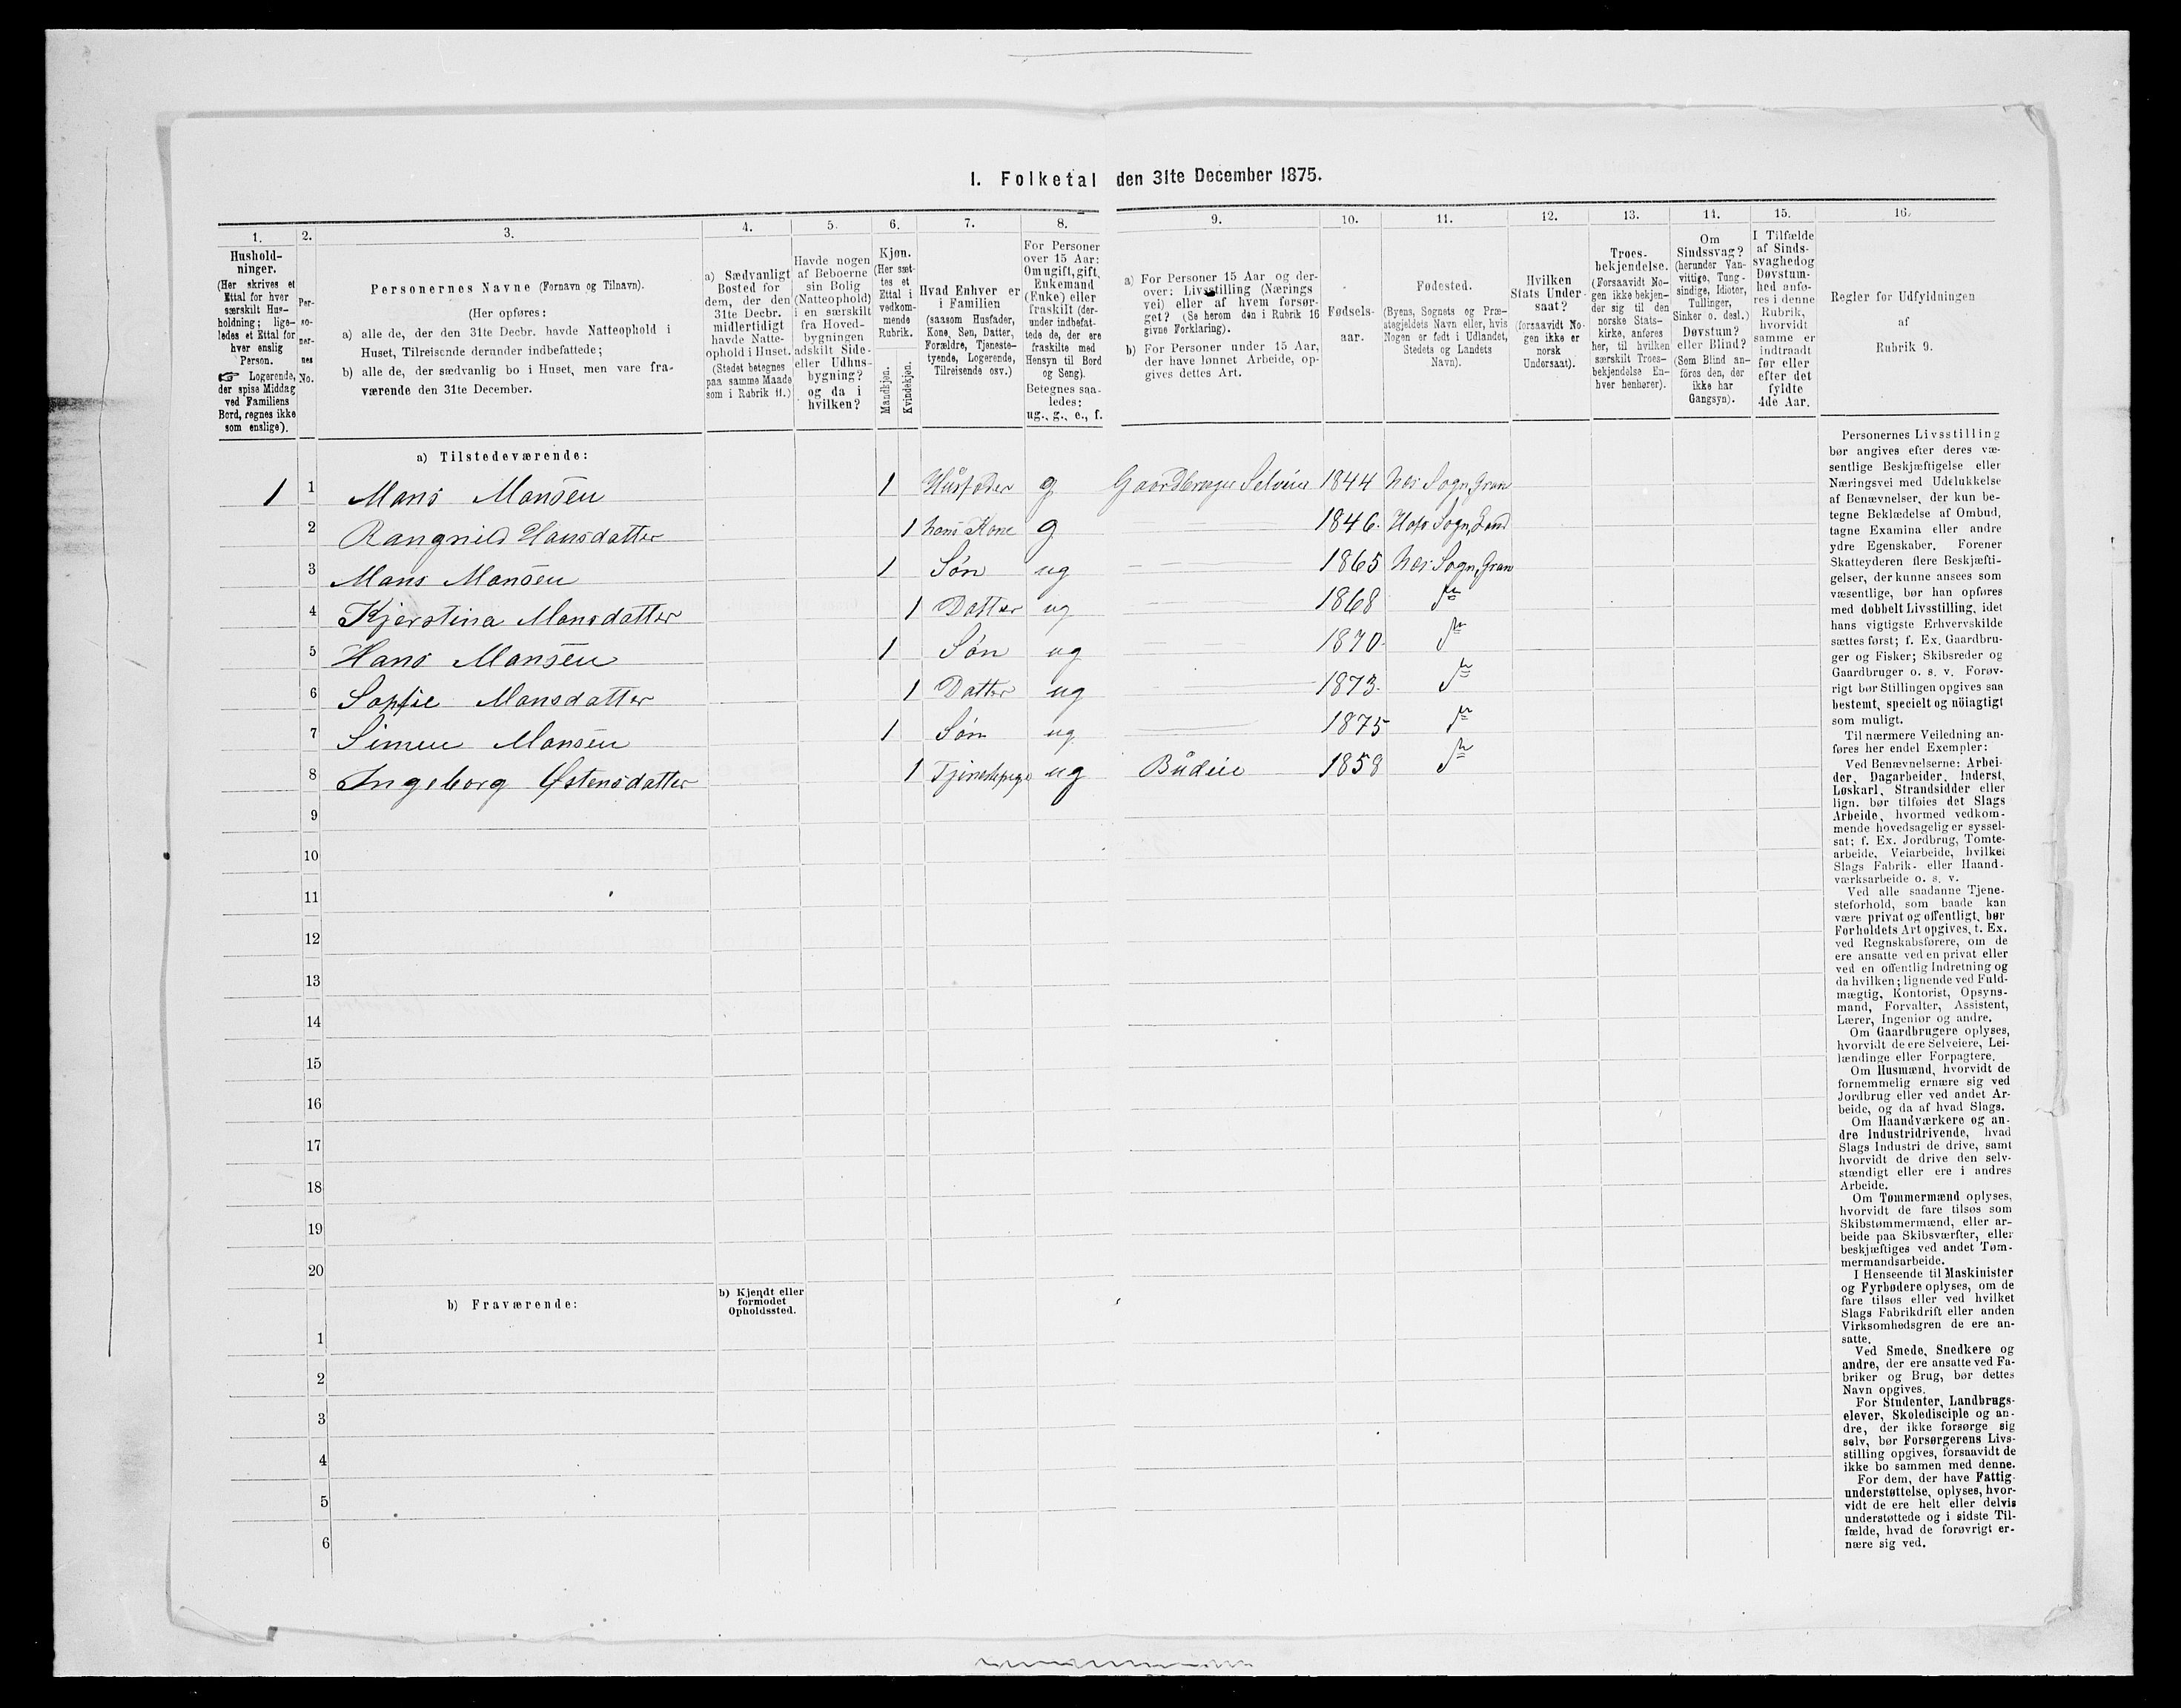 I. Folketal den 31te December 1875.
1.
Hushold-
ninger.
(Her skrives et
Ettal for hver
særskilt Hus-
holdning; lige-
ledes et Ettal for
hver enslig
Person.
☞ Logerende,
der spise Middag
ved Familiens
Bord, regnes ikke
som enslige).
2.
Per-
so-
ner-
nes
No.
3.
Personernes Navne (Fornavn og Tilnavn).
(Her opføres:
a) alle de, der den 31te Decbr. havde Natteophold i
Huset, Tilreisende derunder indbefattede;
b) alle de, der sædvanlig bo i Huset, men vare fra-
værende den 31te December.
4.
a) Sædvanligt
Bosted for
dem, der den
31te Decbr.
midlertidigt
havde Natte-
ophold i Huset.
(Stedet betegnes
paa samme Maade
som i Rubrik 11.)
5.
Havde nogen
af Beboerne
sin Bolig
(Natteophold)
i en særskilt
fra Hoved-
bygningen
adskilt Side-
eller Udhus-
bygning?
og da i
hvilken?
6.
Kjøn.
(Her sæt-
tes et
Ettal i
vedkom-
mende
Rubrik.
Mandkjøn.
Kvindekjøn.
7.
Hvad Enhver er
i Familien
(saasom Husfader,
Kone, Søn, Datter,
Forældre, Tjeneste-
tyende, Logerende,
Tilreisende osv.)
8.
For Personer
over 15 Aar:
Om ugift, gift,
Enkemand
(Enke) eller
fraskilt (der-
under indbefat-
tede de, der ere
fraskilte med
Hensyn til Bord
og Seng).
Betegnes saa-
ledes:
ug., g., e., f.
9.
a) For Personer 15 Aar og der-
over: Livsstilling (Nærings
vei) eller af hvem forsør-
get? (Se herom den i Rubrik 16
givne Forklaring).
b) For Personer under 15 Aar,
der have lønnet Arbeide, op-
gives dettes Art.
10.
Fødsels-
aar.
11.
Fødested.
(Byens, Sognets og Præ-
stegjeldets Navn eller, hvis
Nogen er født i Udlandet,
Stedets og Landets
Navn).
12.
Hvilken
Stats Under-
saat?
(forsaavidt No-
gen ikke er
norsk
Undersaat).
13.
Troes-
bekjendelse.
(Forsaavidt No-
gen ikke bekjen-
der sig til den
norske Stats-
kirke, anføres
her, til hvilken
særskilt Troes-
bekjendelse En-
hver henhører).
14.
Om
Sindssvag?
(herunder Van-
vittige, Tung-
sindige, Idioter,
Tullinger,
Sinker o. desl.)
Døvstum?
eller Blind?
(Som Blind an-
føres den, der
ikke har
Gangsyn).
15.
I Tilfælde
af Sinds-
svaghed og
Døvstum-
hed anfø-
res i denne
Rubrik,
hvorvidt
samme er
indtraadt
før eller
efter det
fyldte
4de Aar.
16.
Regler for Udfyldningen
af
Rubrik 9.
a) Tilstedeværende:
1 1 Mans Mansen 1 Husfader g Gaardbruger Selveier 1844 Næs Sogn, Gran
2 Rangnild Hansdatter 1 hans Kone g 1846. Hofs Sogn, Land
3 Mans Mansen 1 Søn ug 1865 Næs Sogn, Gran
4 Kjerstina Mansdatter 1 Datter ug 1868
5 Hans Mansen 1 Søn ug 1870
6 Sophie Mansdatter 1 Datter ug 1873.
7 Simen Mansen 1 Søn ug 1875
8 Ingeborg Østensdatter 1 Tjenestepige ug Budeie 1858
9
10
11
12
13
14
15
16
17
18
19
20
b) Fraværende:
b) Kjendt eller
formodet
Opholdssted.
1
2
3
4
5
6
Personernes Livsstilling
bør angives efter deres væ-
sentlige Beskjæftigelse eller
Næringsvei med Udelukkelse
af Benævnelser, der kun be-
tegne Beklædelse af Ombud,
tagne Examina eller andre
ydre Egenskaber. Forener
Skatteyderen flere Beskjæfti-
gelser, der kunne ansees som
væsentlige, bør han opføres
med dobbelt Livsstilling, idet
hans vigtigste Erhvervskilde
sættes først; f. Ex. Gaardbru-
ger og Fisker; Skibsreder og
Gaardbruger o. s. v. Forøv-
rigt bør Stillingen opgives saa
bestemt, specielt og nöiagtigt
som muligt.
Til nærmere Veiledning an-
føres her endel Exempler:
Ved Benævnelserne: Arbei-
der, Dagarbeider, Inderst,
Løskarl, Strandsidder eller
lign. bør tilføies det Slags
Arbeide, hvormed vedkom-
mende hovedsagelig er syssel-
sat; f. Ex. Jordbrug, Tomte-
arbeide, Veiarbeide, hvilket
Slags Fabrik- eller Haand-
værksarbeide o. s. v.
Ved alle saadanne Tjene-
steforhold, som baade kan
være privat og offentligt, bør
Forholdets Art opgives, t. Ex.
ved Regnskabsførere, om de
ere ansatte ved en privat eller
ved en offentlig Indretning og
da hvilken; lignende ved Fuld-
mægtig, Kontorist, Opsyns-
mand, Forvalter, Assistent,
Lærer, Ingeniør og andre.
Om Gaardbrugere oplyses,
hvorvidt de ere Selveiere, Lei-
lændinge eller Forpagtere.
Om Husmænd, hvorvidt de
fornemmelig ernære sig ved
Jordbrug eller ved andet Ar-
beide, og da af hvad Slags.
Om Haandværkere og an-
dre Industridrivende, hvad
Slags Industri de drive, samt
hvorvidt de drive den selv-
stændigt eller ere i andres
Arbeide.
Om Tømmermænd oplyses,
hvorvidt de fare tilsøs som
Skibstømmermænd, eller ar-
beide paa Skibsværfter, eller
beskjæftiges ved andet Tøm-
mermandsarbeide.
I Henseende til Maskinister
og Fyrbødere oplyses, om de
fare tilsøs eller ved hvilket
Slags Fabrikdrift eller anden
Virksomhedsgren de ere an-
satte.
Ved Smede, Snedkere og
andre, der ere ansatte ved Fa-
briker og Brug, bør dettes
Navn opgives.
For Studenter, Landbrugs-
elever, Skoledisciple og an-
dre, der ikke forsørge sig
selv, bør Forsørgerens Livs-
stilling opgives, forsaavidt de
ikke bo sammen med denne.
For dem, der have Fattig-
understøttelse, oplyses, hvor-
vidt de ere helt eller delvis
understøttede og i sidste Til-
fælde, hvad de forøvrigt er-
nære sig ved.